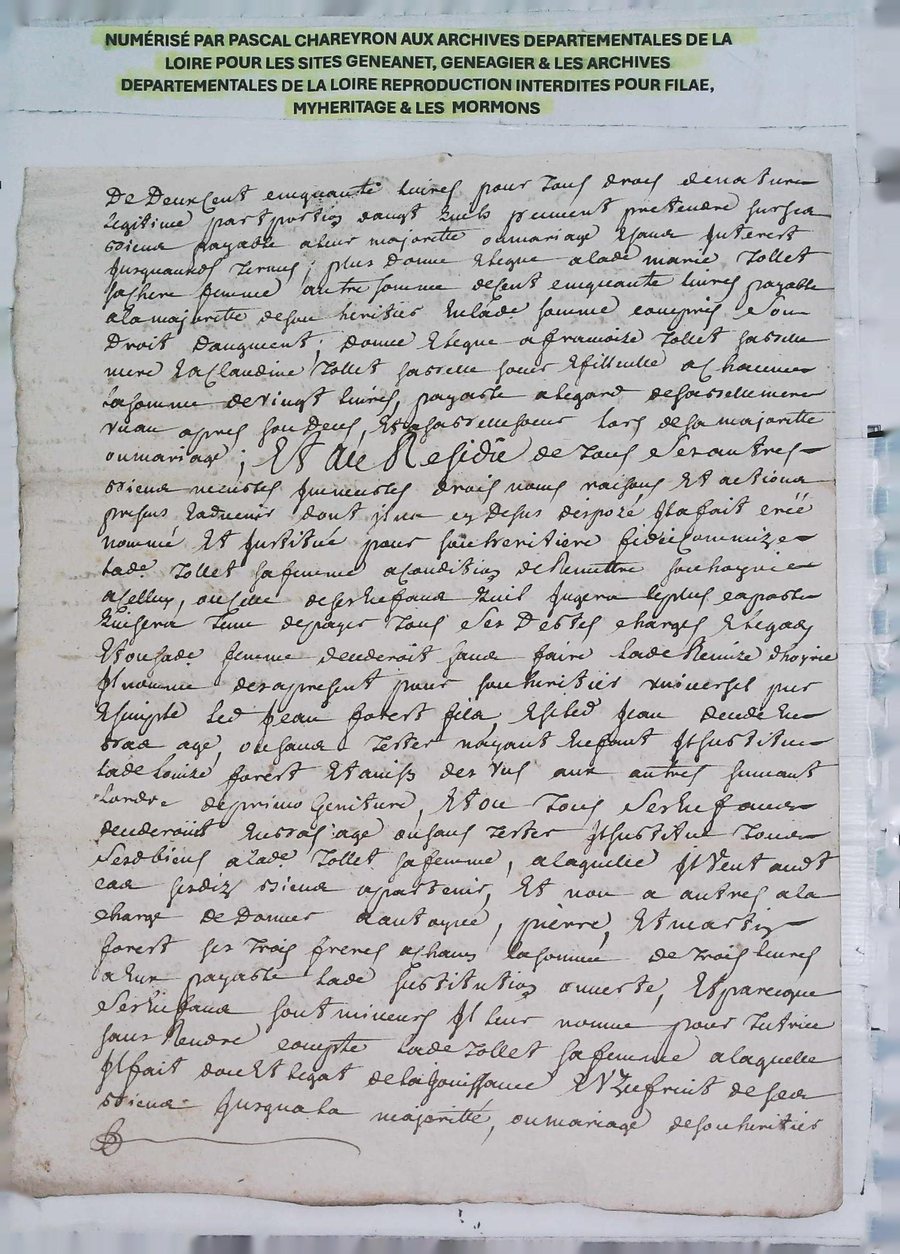 NUMÉRISÉ PAR PASCAL CHAREYRON AUX ARCHIVES DEPARTEMENTALES DE LA
LOIRE POUR LES SITES GENEANET, GENEAGIER & LES ARCHIVES
DEPARTEMENTALES DE LA LOIRE REPRODUCTION INTERDITES POUR FILAE,
MYHERITAGE & LES MORMONS
De Deux Cent cinquante livres pour Tous drois de nature
legitime part portion daugt quils peuvent pretendre sur sea
biena payable a leur majoritte ou mariage Et sanx Interest
Jusquausd Termes ; plus donne Elegue a lade marie Tollet
sa chere femme autre somme de Cent cinquante livres payable
a la majoritte de son heritier En lade somme compris son
Droit daugment ; donne Elegue a francoize Tollet sa belle
mere Ea Claudine Tollet sa belle soeur Et filleulle a chacune
la somme de vingt livres, payable a legard de sa belle mere
un an apres son Deces, Et a sa belle soeur lors de sa majoritte
ou mariage ; Et Au Residu de Tous Ses autres
biena meubles Immeubles drois noms raisons Et actiona
presens Eadvenir dont il na cy Desus dispozé Il a fait créé
nommé Et Institué pour son heritiere fideicommize
lade Tollet sa femme a condition de Remettre son hoyrie
a celluy, ou celle de ses Enfana quil Jugera le plus capable
qui sera Tenu de payer Tous Ses Debtes charges Elegaz
Et ou sade femme decederoit sana faire lade Remize dhoyrie
Il nomme dez a present pour son heritier universel pur
Esimple led Jean forest fila, Et si led Jean decede En
baa age, ou sana Tester nayant Enfant Il substitue
lade Louize forest Et ainsy des uns aux autres suivant
Lordre de primo Geniture, Et ou Tous Ses Enfana
decederoient En bas age ou sans Tester Il substitue Tous
Sesd biens a lade Tollet sa femme, a laquelle Il veut audt
cas sesdiz biena apartenir, Et non a autres a la
charge de Donner a antoyne, pierre, Et martin
forest ses Trois freres a chacun la somme de Trois livres
a Eux payable lade Substitution ouverte, Et parceque
Ses Enfana sont mineurs Il leur nomme pour Tutrice
sans Rendre compte lade Tollet sa femme a laquelle
Il fait don Et legat de la Jouissance Et Uzufruit de sea
biena Jusqua la majorité, ou mariage de son heritier